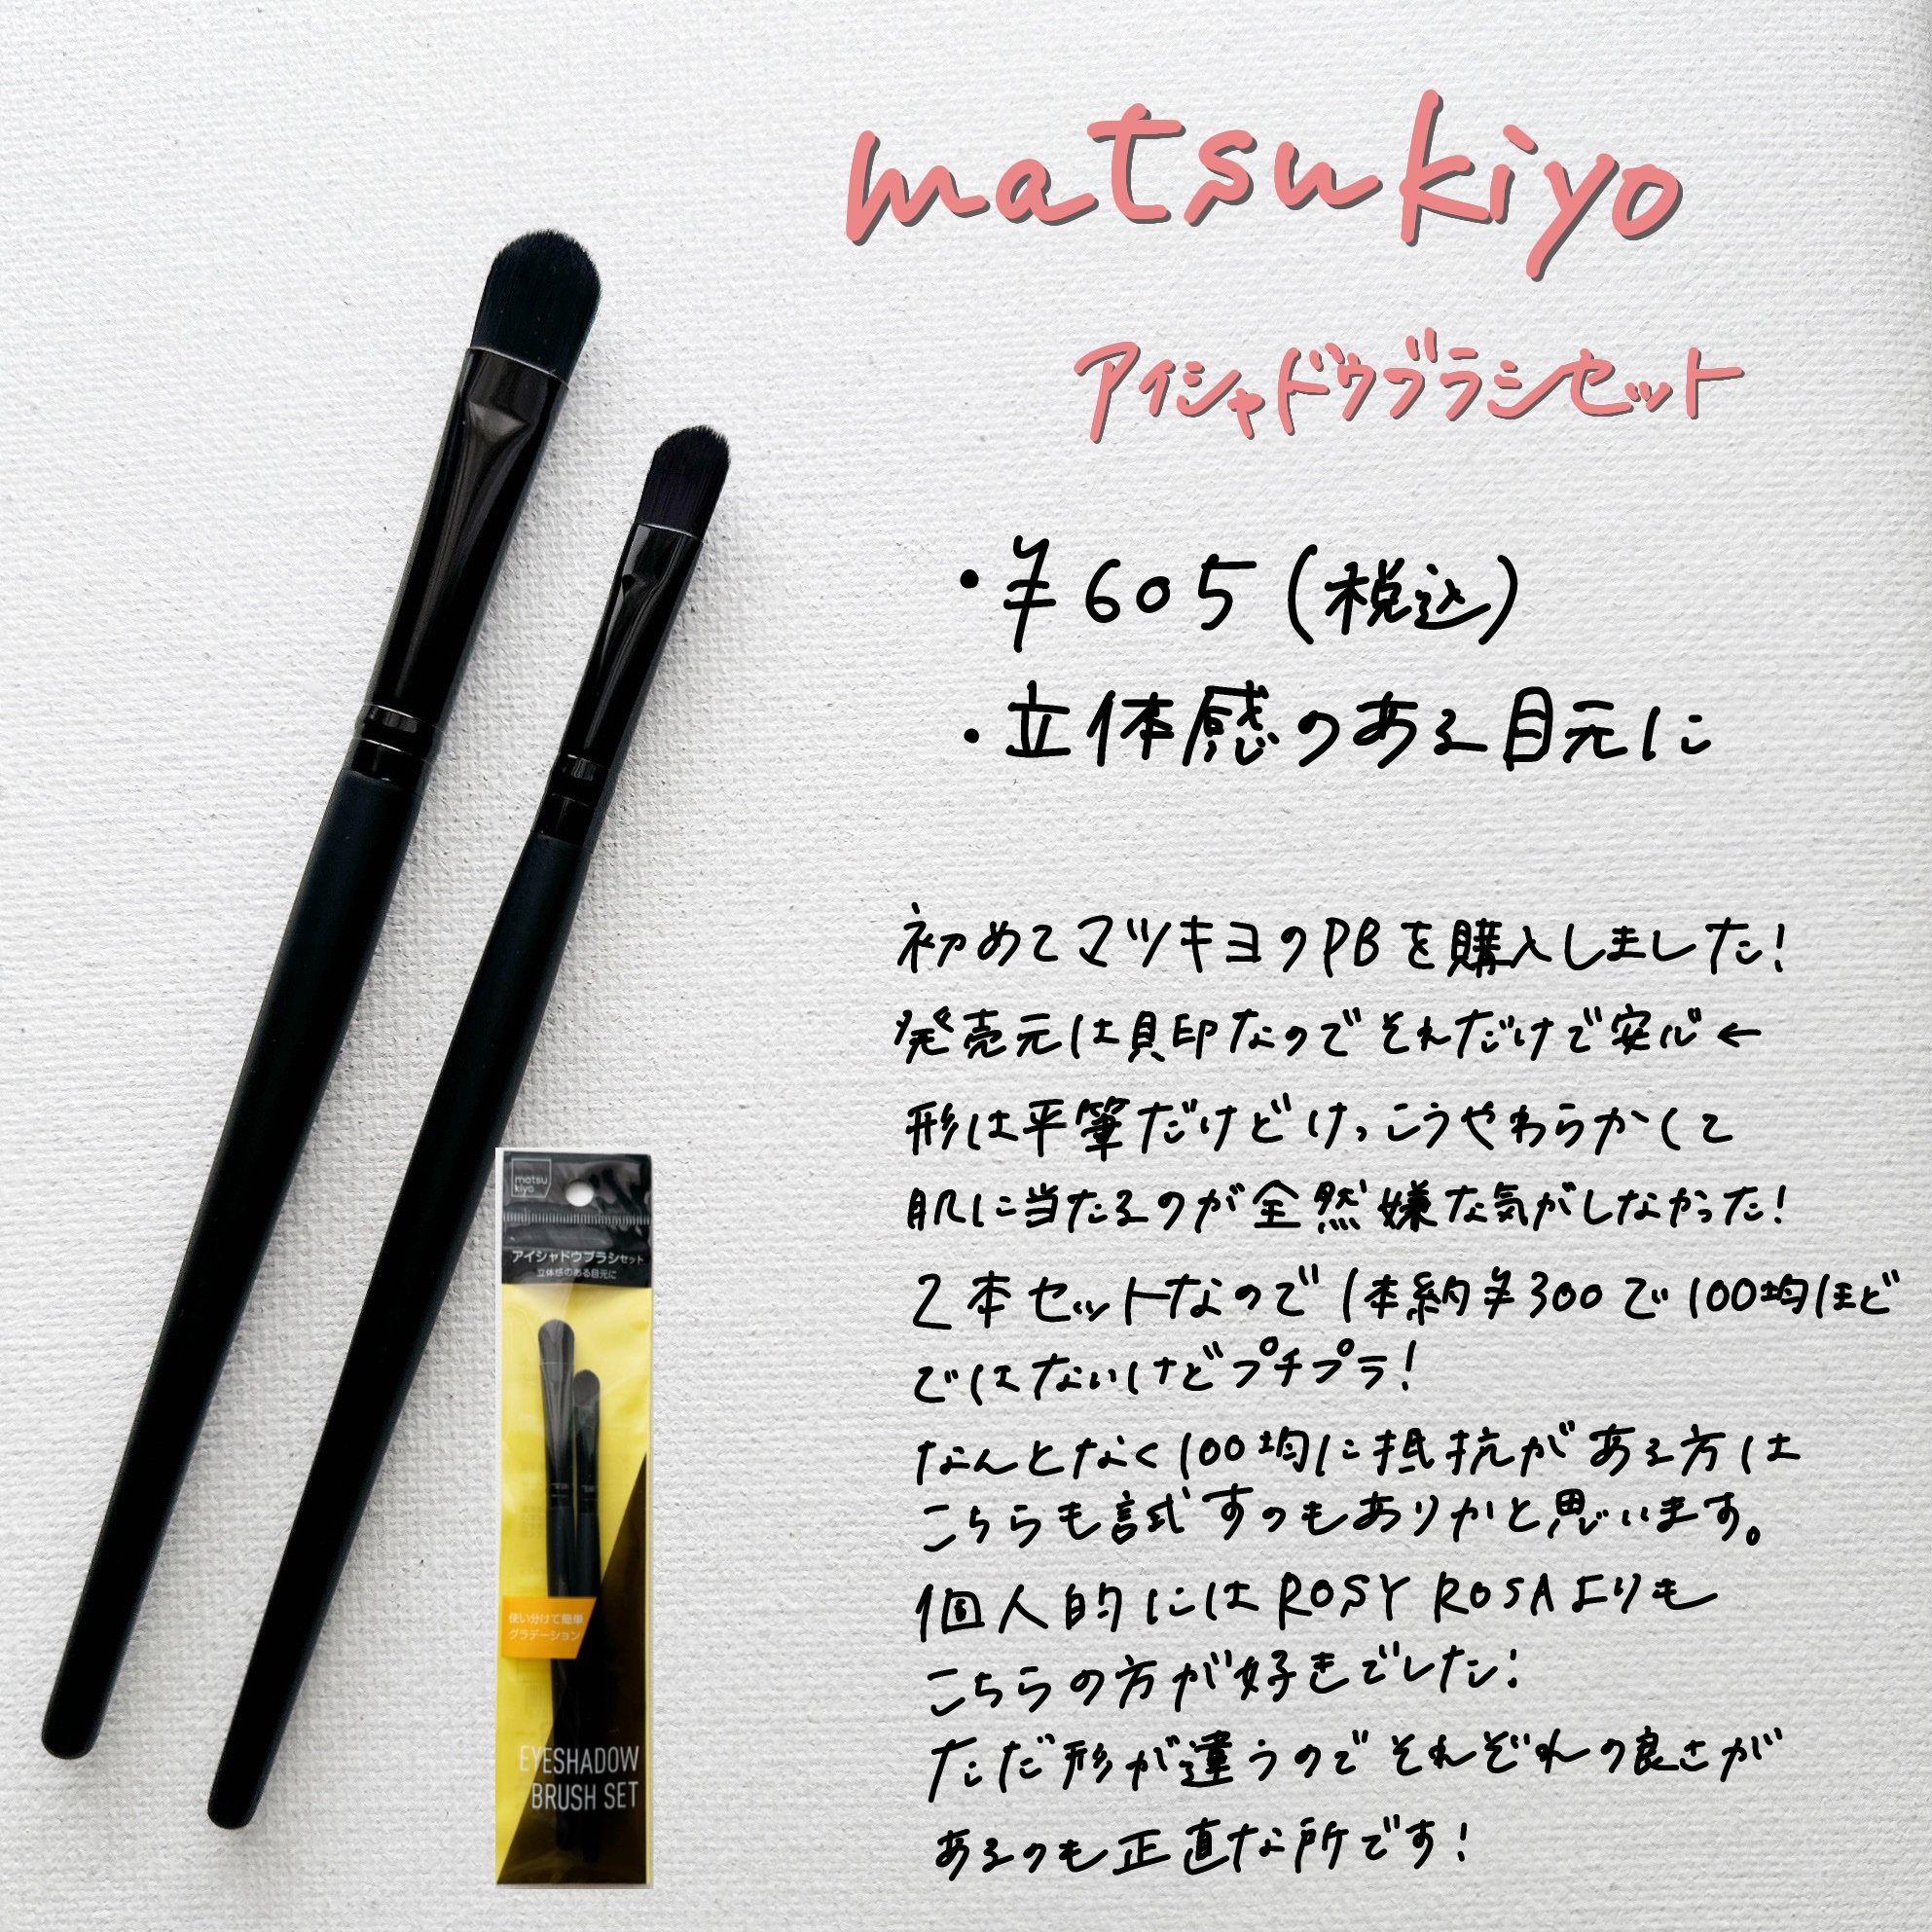 matsukiyo
アイシャドウブラシセット
・¥605(税込)
・立体感のある目元に
初めてマツキヨのPBを購入しました!
発売元は貝印なのでそれだけで安心←
形は平筆だけどけっこうやわらかくて
肌に当たるのが全然嫌な気がしなかった!
2本セットなので1本約¥300で100均ほど
ではないけどプチプラ!
なんとなく100均に抵抗がある方は
こちらも試すのもありかと思います。
個人的にはROSY ROSAよりも
こちらの方が好きでした!
ただ形が違うのでそれぞれの良さが
あるのも正直な所です!
matsu
kiyo
アイシャドウブラシセット
立体感のある目元に
使い分けて簡単
グラデーション
EYESHADOW
BRUSH SET